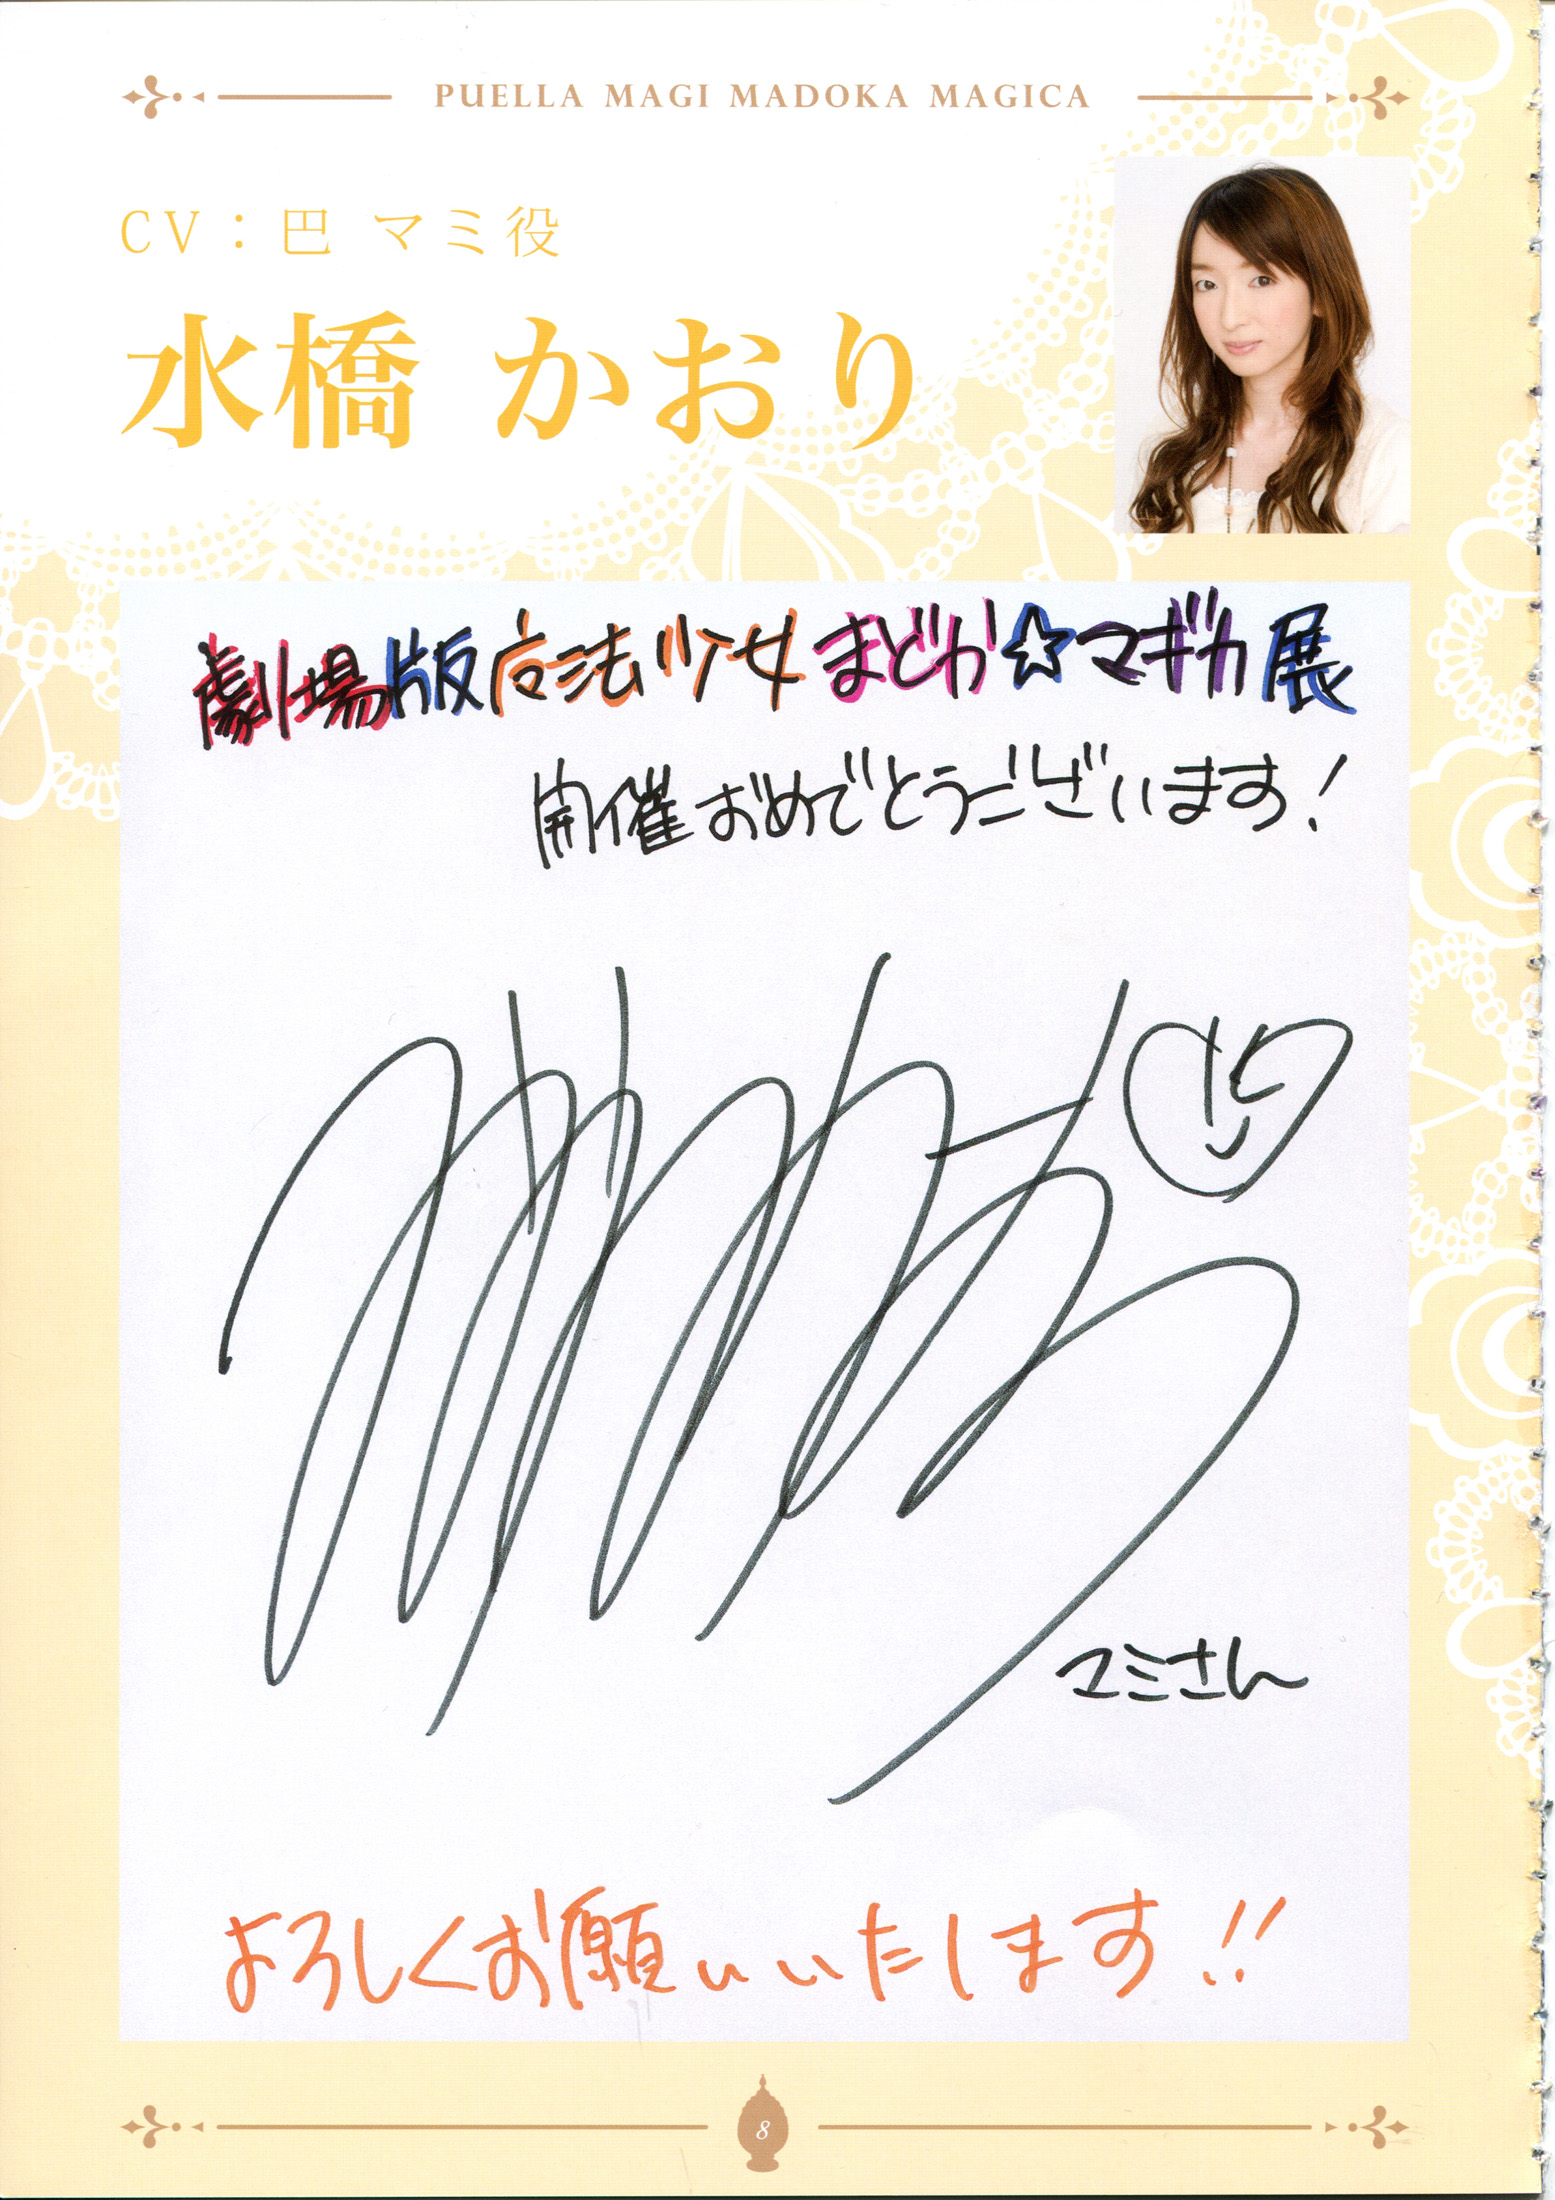 PUELLA MAGI MADOKA MAGICA
CV：巴 マミ役
水橋 かおり
劇場版魔法少女まどか☆マギカ展
開催おめでとうございます！
マミさん
よろしくお願いいたします!!
8